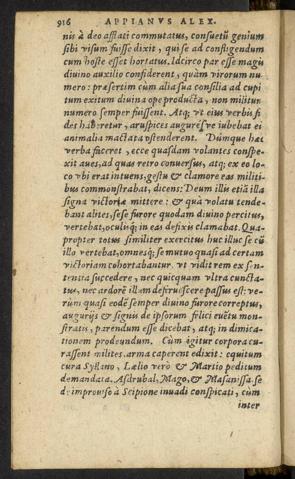 916 APPIANVS ALEX.
nis à deo afflati commutatus, consueti genium
sibi visum fuisse dixit, qui se ad confligendum
cum hoste esset hortatus. Idcirco par esse magis
diuino auxilio confiderent, quàm virorum nu-
mero: præsertim cum alia sua consilia ad cupi
tum exitum diuina ope producta, non militum
numero semper fuissent. Atq; vt eius verbis fi
des haberetur, aruspices auguresve iubebat ei
animalia mactata ostenderent. Dumque hæc
verba faceret, ecce quasdam volantes conspe-
xit aues, ad quas retro conuersus, atq; ex eo lo-
co vbi erat intuens, gestu & clamore eas militi-
bus commonstrabat, dicens: Deum illis etiã illa
signa victoriæ mittere: & quà volatu tende-
bant alites, sese furore quodam diuino percitus,
vertebat, oculisq; in eas defixis clamabat. Qua-
propter totus similiter exercitus huc illuc se cũ
illo vertebat, omnesq; se mutuo quasi ad certam
victoriam cohortabantur. vt vidit rem ex sen-
tentia succedere, nec quicquam vltra cuncta-
tus, nec ardorẽ illum deferuescere passus est: ve-
rùm quasi eodẽ semper diuino furore correptus,
augurijs & signis de ipsorum felici euẽtu mon-
stratis, parendum esse dicebat, atq; in dimica-
tionem prodeundum. Cùm igitur corpora cu-
rassent milites, arma caperent edixit: equitum
cura Syllano, Lælio verò & Martio peditum
demandata. Asdrubal, Mago, & Masanissa se
de improuiso à Scipione inuadi conspicati, cùm
inter